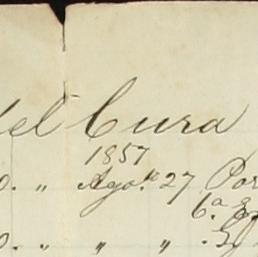 del Cura
1857
„ Ago.to 27 Por
6.a
„ „ „